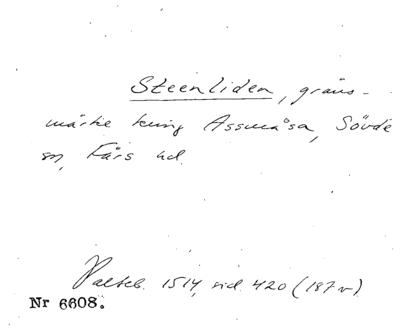 Steenliden, gräns-
märke kring Assmåsa, Sövde
sn, Färs hd.
Palteb. 1514, sid. 420 (187 v)
Nr 6608.